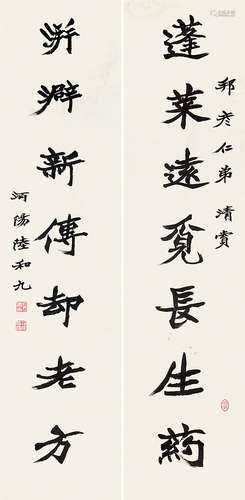 邦彦仁弟清賞
蓬莱遠覓長生葯
洴澼新傳却老方
沔陽陸和九